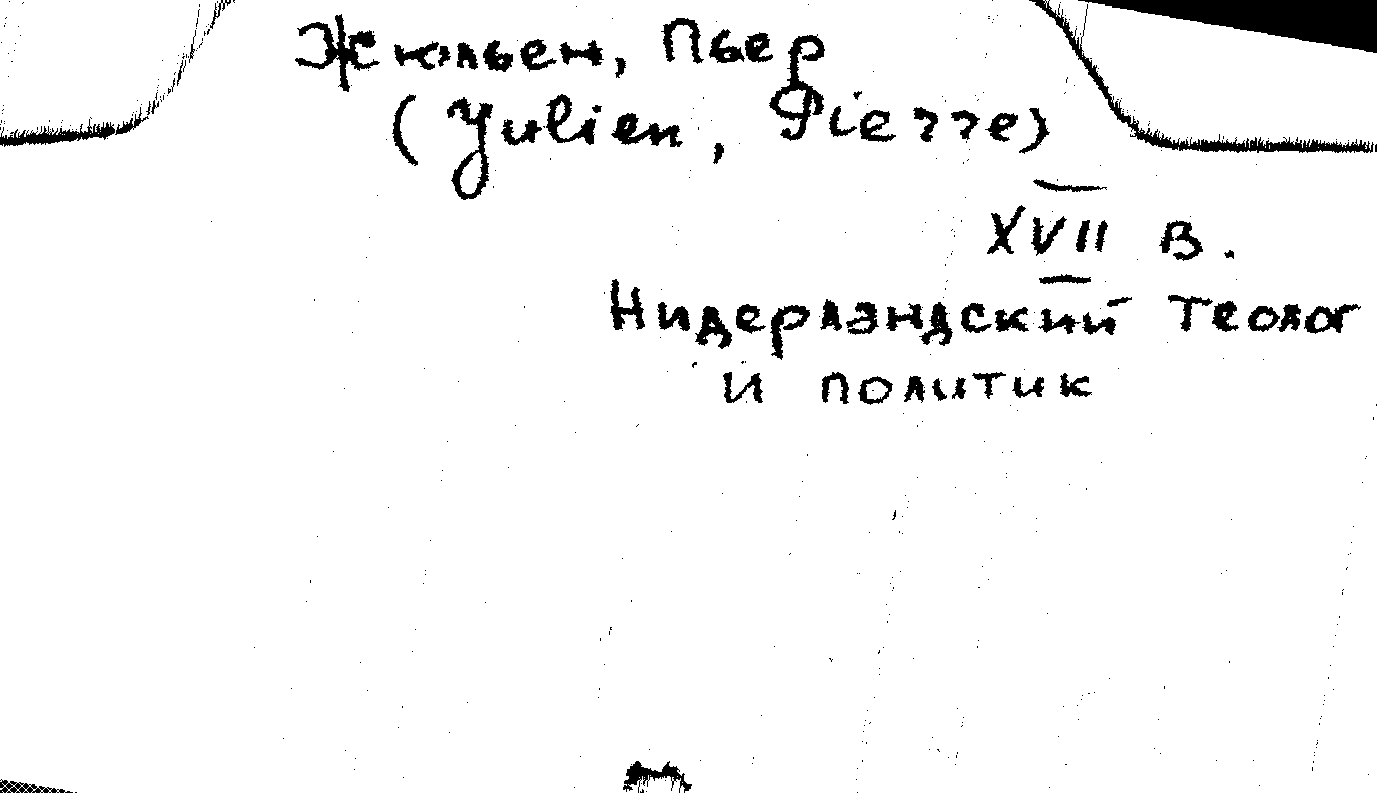 Жюльен, Пьер
(Julien, Pierre)
XVII в.
Нидерландский теолог
и политик